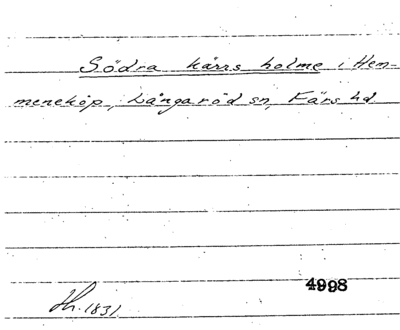 Södra kärrs holme i Hem-
meneköp, Långaröd sn, Färs hd
4998
Th. 1831